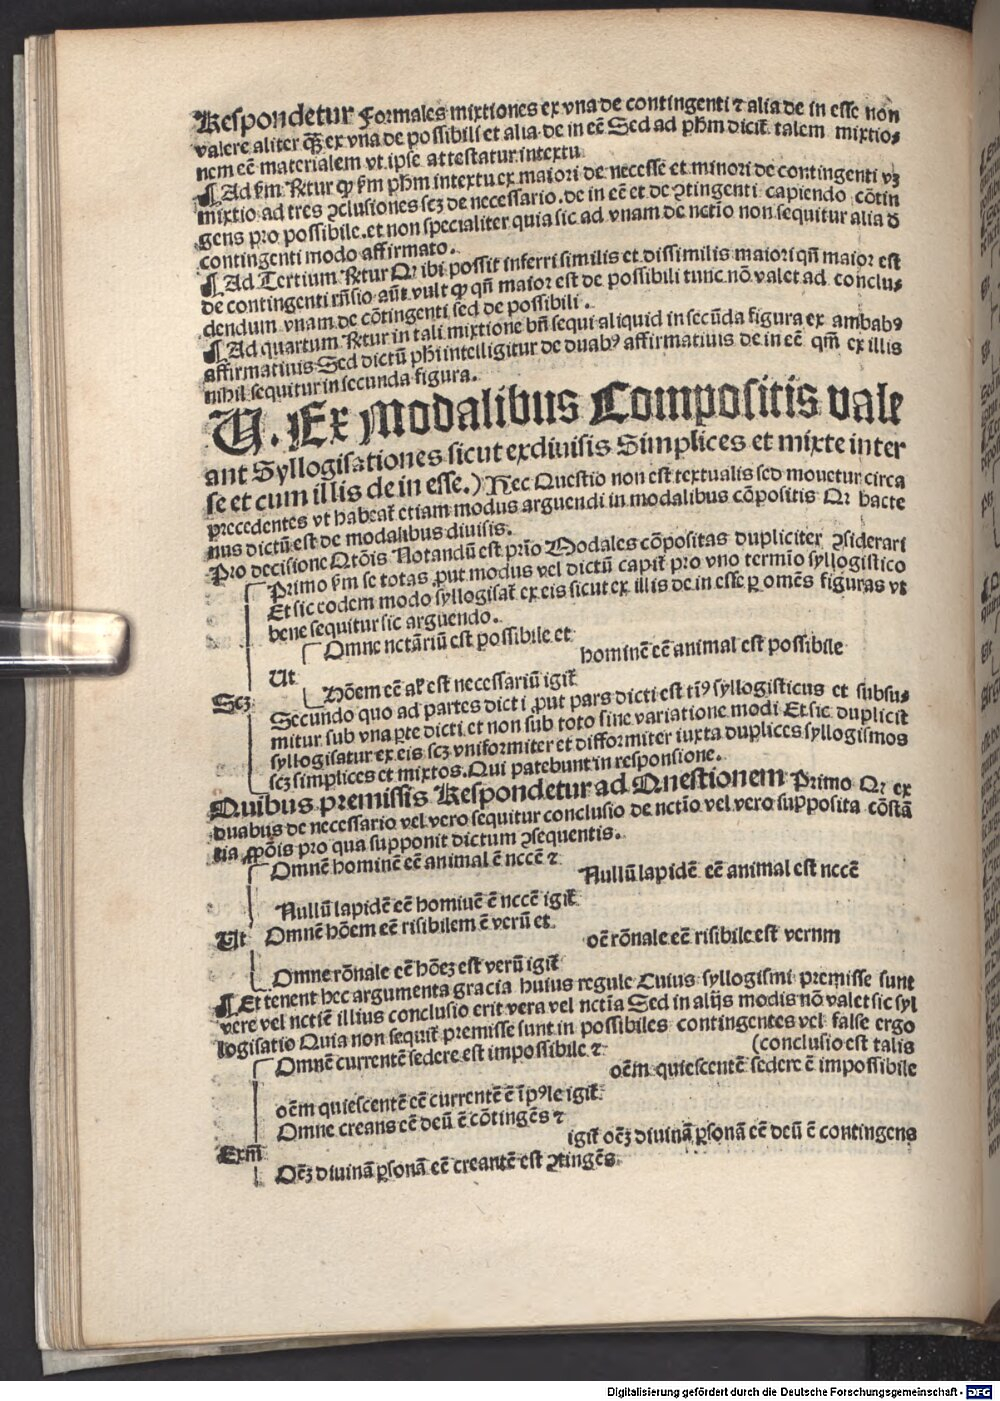 Respondetur Formales mixtiones ex vna de contingenti ⁊ alia de in esse non
valere aliter ex vna de possibili et alia de in eē Sed ad phm dicit talem mixtio⸗
nem eē materialem vt ipse attestatur intextu
¶ Ad Retur phm intextu ex maiori de necesse et minori de contingenti vȝ
mixtio ad tres ꝯclusiones scȝ de necessario. de in eē et de ꝯtingenti capiendo cōtin
gens pro possibile. et non specialiter quia sic ad vnam de nctio non sequitur alia
contingenti modo affirmato.
¶ Ad Tertium Retur ibi possit inferri similis et dissimilis maiori qn̄ maior est
de contingenti rn̄sio aūt vult ꝙ qn̄ maior est de possibili tunc nō valet ad conclu⸗
dendum vnam de cōtingenti sed de possibili.
¶ Ad quartum Retur in tali mixtione bn̄ sequi aliquid in secūda figura ex ambabꝰ
affirmatiuis Sed dictū phi intelligitur de duabꝰ affirmatiuis de in eē qm̄ ex illis
nihil sequitur in secunda figura.
V. Ex Modalibus Compositis vale
ant Syllogisationes sicut exdiuisis Simplices et mixte inter
se et cum illis de in esse.) Hec Questio non est textualis sed mouetur circa
precedentes vt habeat etiam modus arguendi in modalibus cōpositis bacte
nus dictū est de modalibus diuisis.
Pro decisione Notandū est prīo Modales cōpositas dupliciter ꝯsiderari
Primo se totas put modus vel dictū capit pro vno termīo syllogistico
Et sic eodem modo syllogisat ex eis sicut ex illis de in esse ꝑ omēs figuras vt
bene sequitur sic arguendo.
Omne nctāriū est possibile et
hominē eē animal est possibile
Ut
Hōem eē al est necessariū igit
Scȝ
Secundo quo ad partes dicti put pars dicti est tīꝰ syllogisticus et subsu⸗
mitur sub vna pte dicti et non sub toto sine variatione modi Et sic duplicit
syllogisatur ex eis scȝ vniformiter et difformiter iuxta duplices syllogismos
scȝ simplices et mixtos. Qui patebunt in responsione.
Quibus premissis Respondetur ad Qnestionem Primo ex
duabus de necessario vel vero sequitur conclusio de nctio vel vero supposita cōstā
tia pro qua supponit dictum ꝯsequentis.
Omnē hominē eē animal ē nccē ⁊
Nullū lapidē eē animal est nccē
Nullū lapidē eē hominē ē nccē igit
Ut
Omnē hōem eē risibilem ē verū et
oē rōnale eē risibile est vernm
Omne rōnale eē hōeȝ est verū igit
¶ Et tenent hec argumenta gracia huius regule Cuius syllogismi premisse sunt
vere vel nctiē illius conclusio erit vera vel nctia Sed in alijs modis nō valet sic syl
logisatio Quia non sequit premisse sunt in possibiles contingentes vel false ergo
(conclusio est talis
Omnē currentē sedere est impossibile ⁊
oēm quiescentē sedere ē impossibile
oēm quiescentē eē currentē ē īpꝰle igit
Omne creans eē deū ē cōtingēs ⁊
igit oēȝ diuinā ꝑsonā eē deū ē contingens
Exm̄
Oēȝ diuinā ꝑsonā eē creantē est ꝯtingēs
Digitalisierung gefördert durch die Deutsche Forschungsgemeinschaft - DFG